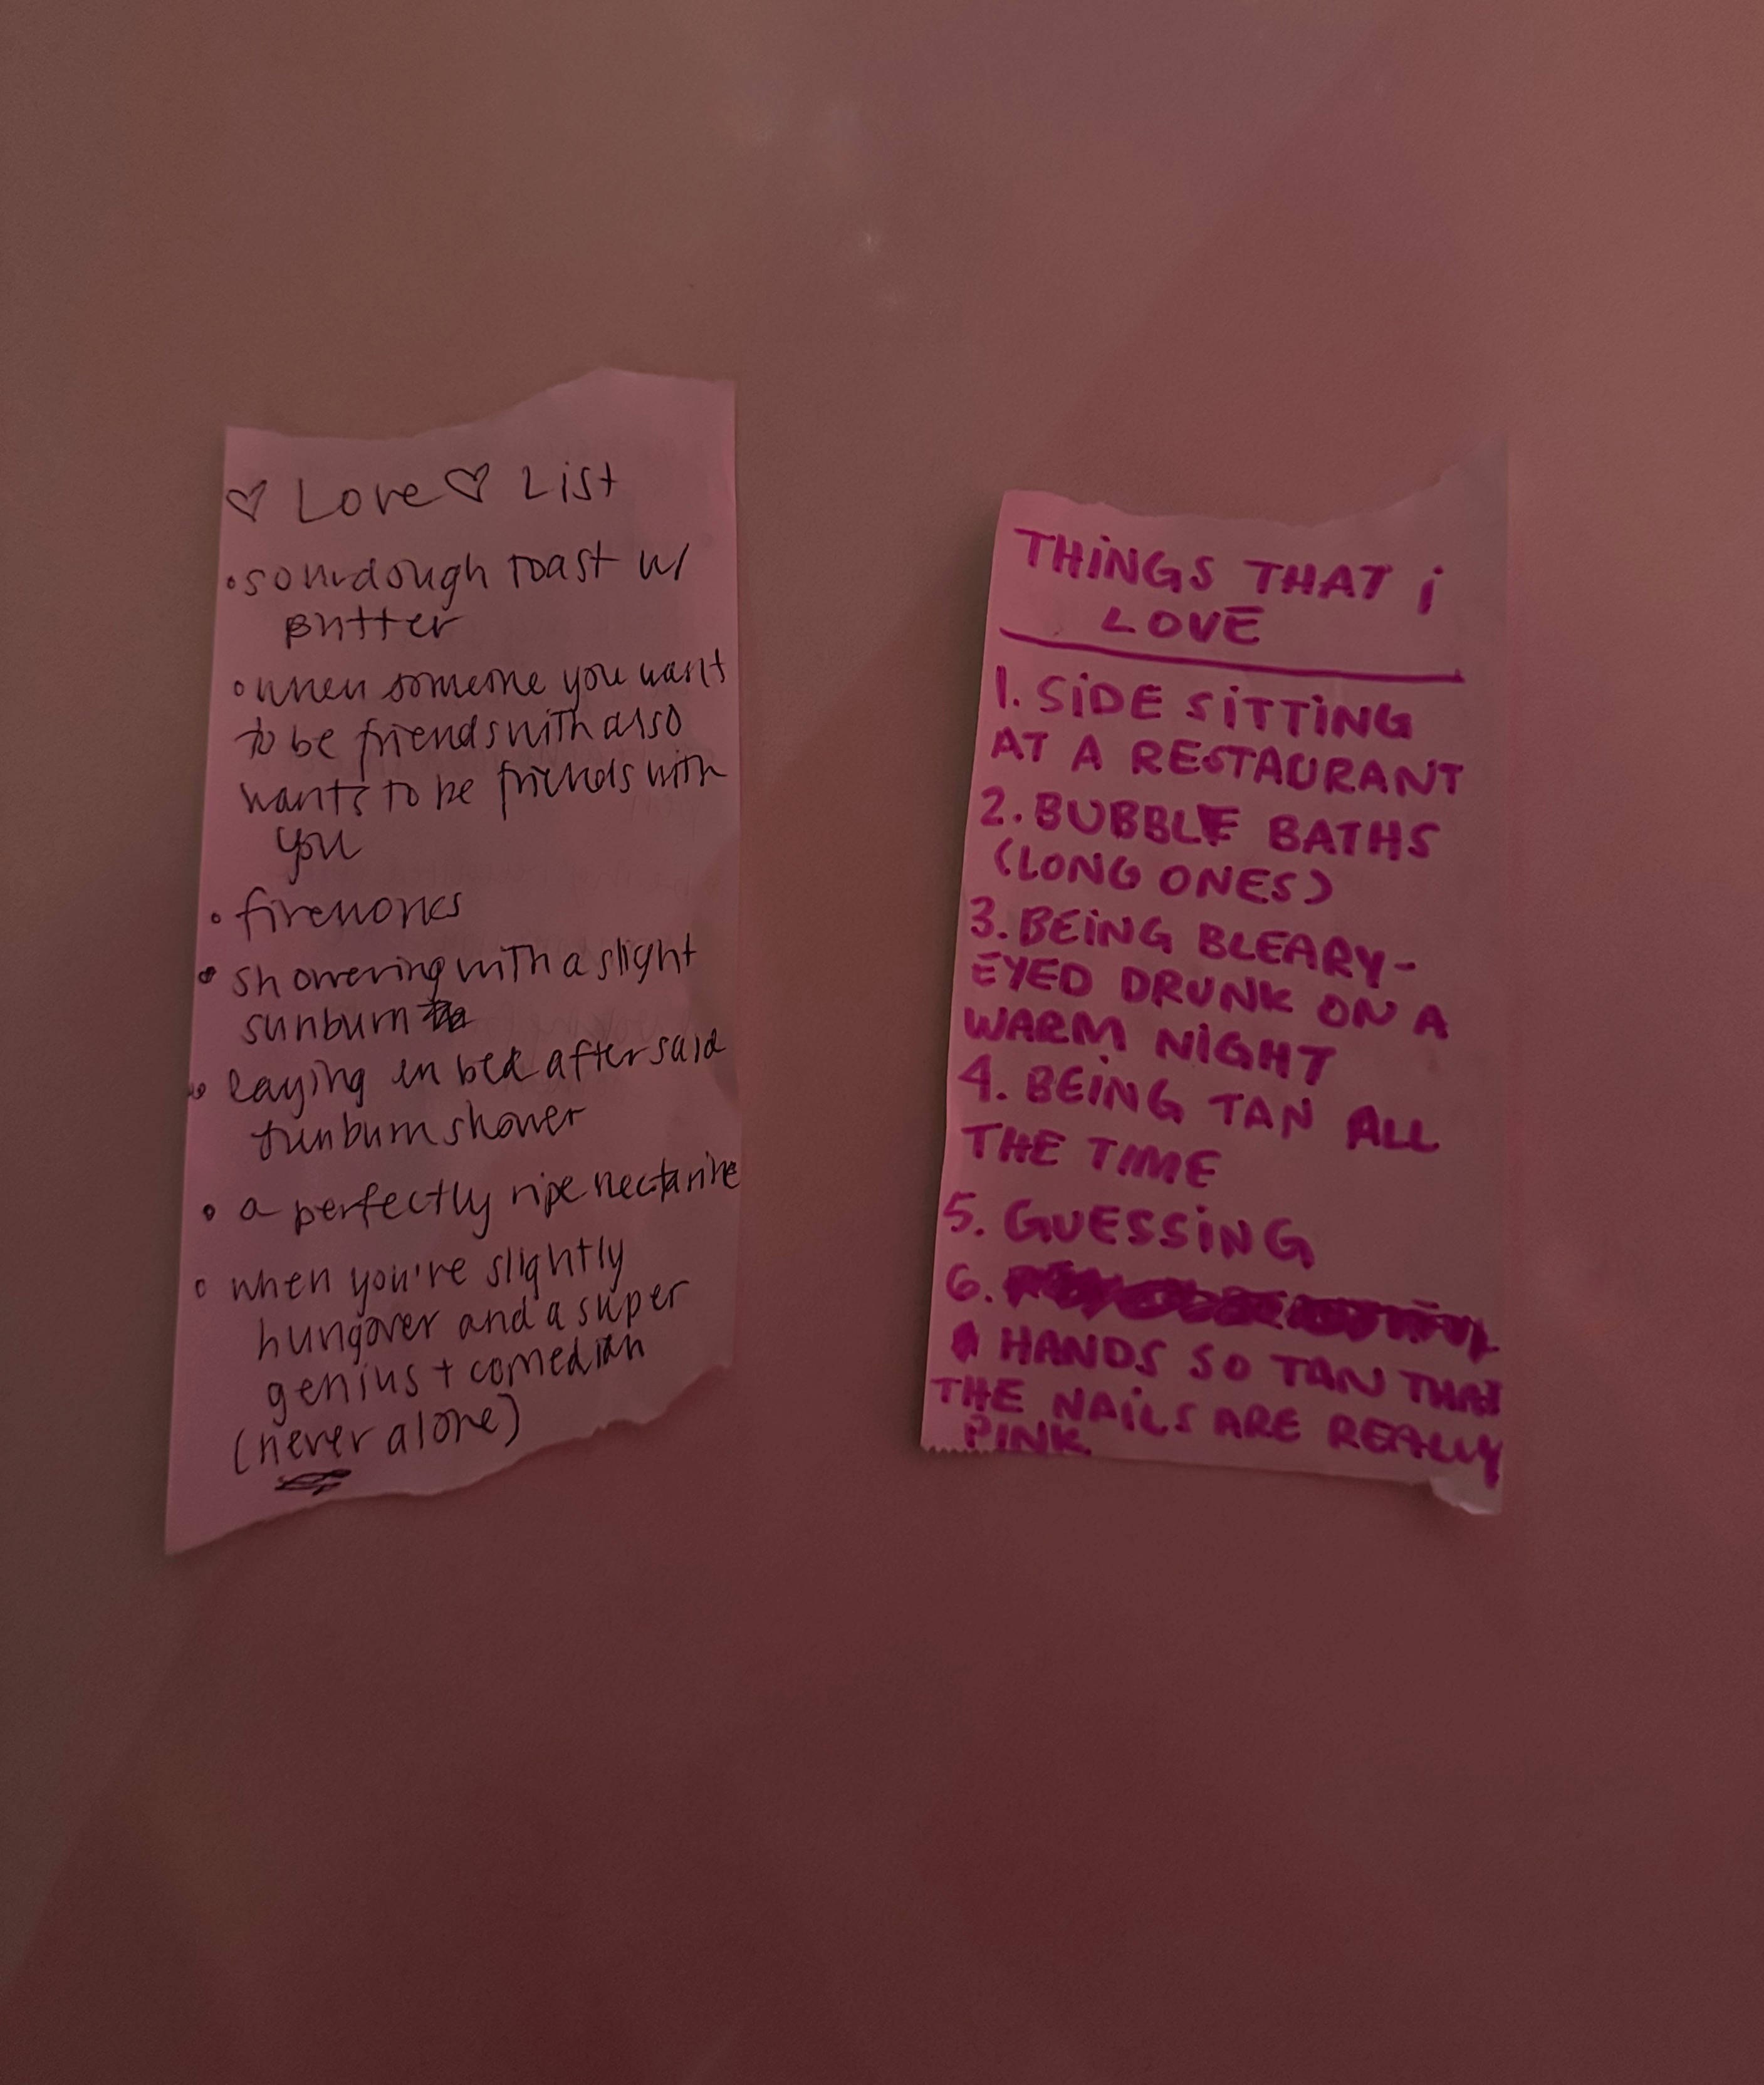 ♡ Love ♡ List
• sourdough toast w/
butter
• when someone you want
to be friends with also
wants to be friends with
you
• fireworks
• showering with a slight
sunburn
• laying in bed after said
sunburn shower
• a perfectly ripe nectarine
• when you're slightly
hungover and a super
genius + comedian
(never alone)
THiNGS THAT i
LOVE
1. SiDE SiTTiNG
AT A RESTAURANT
2. BUBBLE BATHS
(LONG ONES)
3. BEiNG BLEARY-
EYED DRUNK ON A
WARM NiGHT
4. BEiNG TAN ALL
THE TIME
5. GUESSiNG
6.
HANDS SO TAN THAT
THE NAiLS ARE REALLY
PINK.